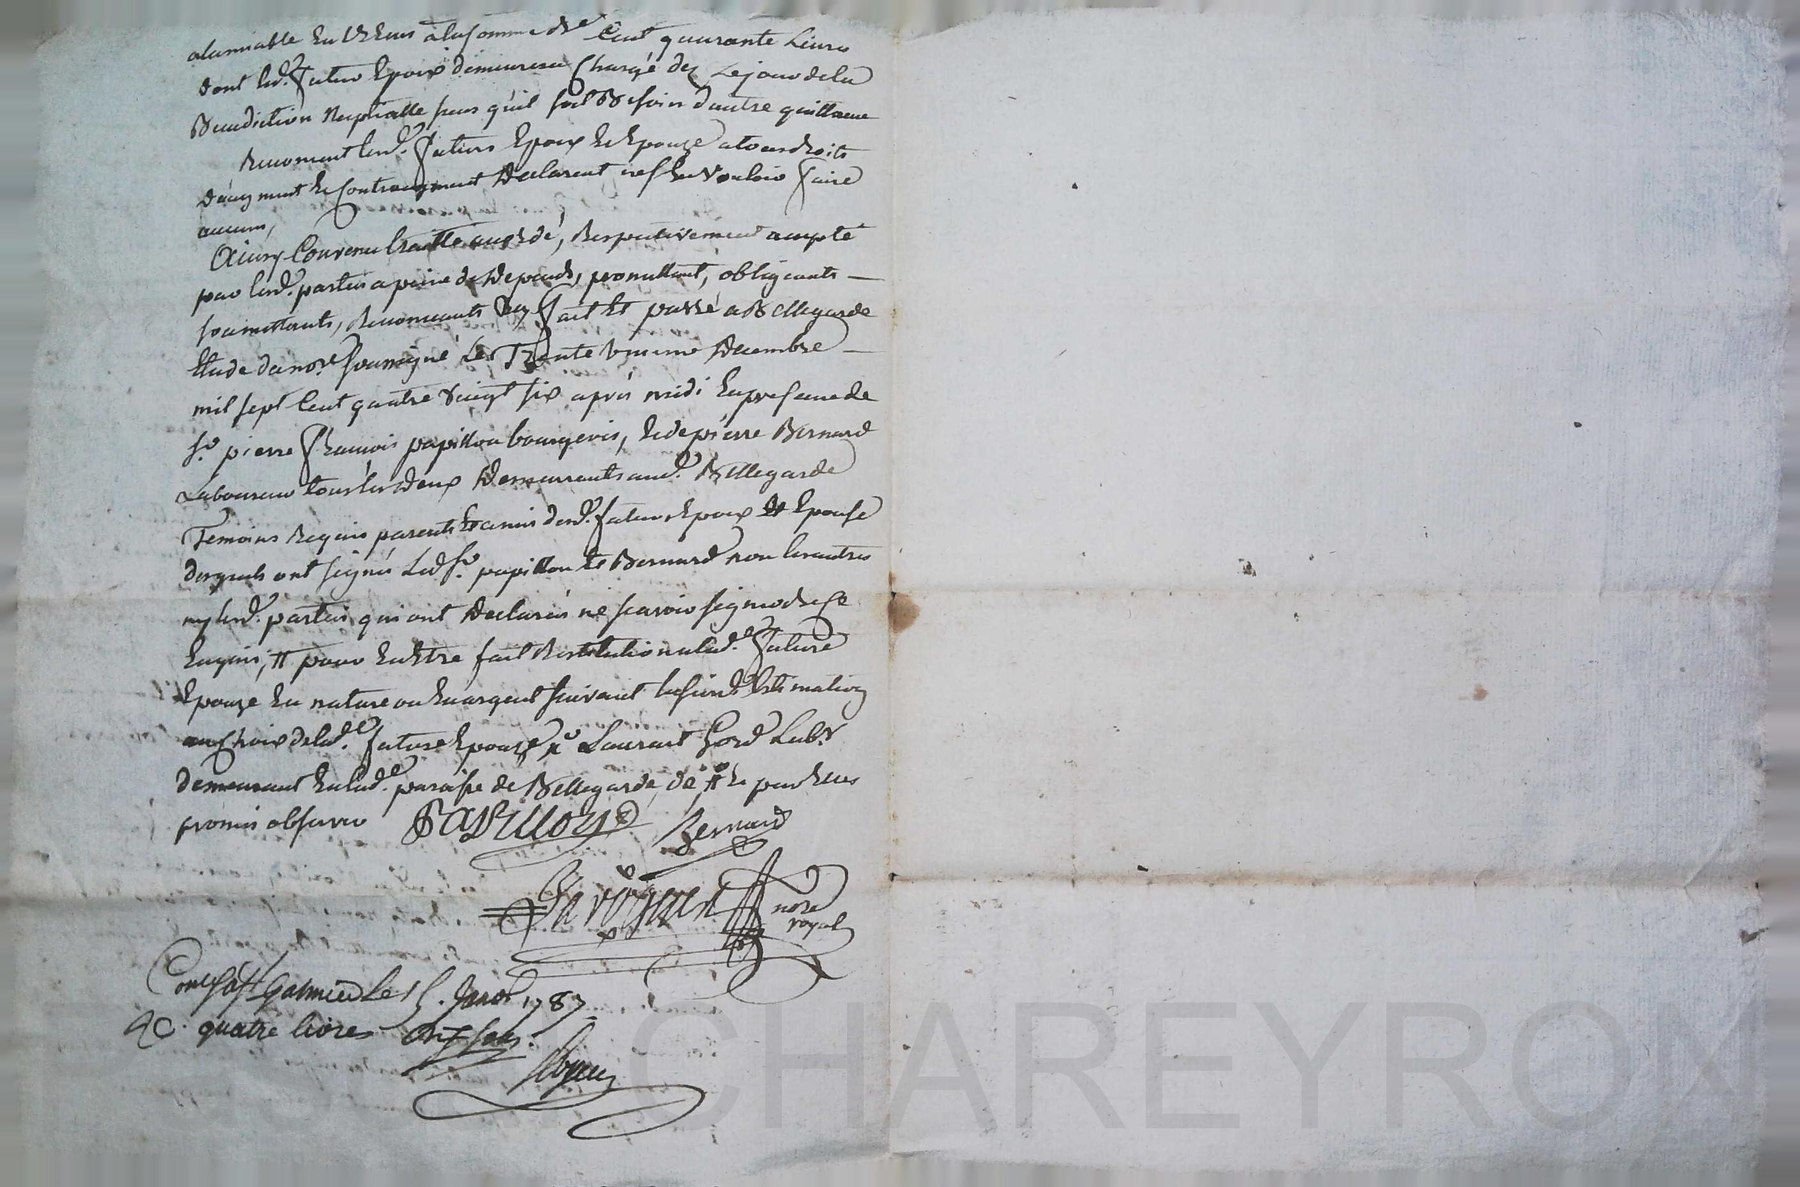 alamiable Entr'Eux alasomme de Cent quarante Livres
dont led. futur Epoux demeurera Chargé dez Lejour dela
Benediction Nuptialle sans quil soit Besoin dautre quittance
Renoncent lesd. futurs Epoux Et Epouze atous droits
daugment Et Contraugment Declarent nef En Vouloir faire
aucun,
Ainsy Convenu traitté accordé, Respectivement accepté
par lesd. parties a peine de Depends, promettant, obligeants
soumettants, Renonceants &ce fait Et passé a Bellegarde
Etude du nore. soussigné Le Trente unieme decembre
mil sept Cent quatre Vingt six apres midi Enpresence de
Sr. pierre francois papillon bourgeois, Et de pierre Bernard
Laboureur tous les deux demeurants aud. Bellegarde
Temoins Requis parents Et amis desd. futurs Epoux Et Epouse
desquels ont signés Led Sr. papillon Et Bernard non les autres
ny lesd. parties qui ont declarés ne scavoir signer de ce
Enquis, # pour En Etre fait Restitution alad. future
Epouze En nature ou En argent suivant lesusd. Estimation
au Choix delad. future Epouze, Laurant Labr.
demeurant En lad. paroisse de Bellegarde, par Eux
promis observer Papillon Bernard
nore
royal
Conlé a St Galmier Le 15. Janvr 1787
quatre livres dix sols.